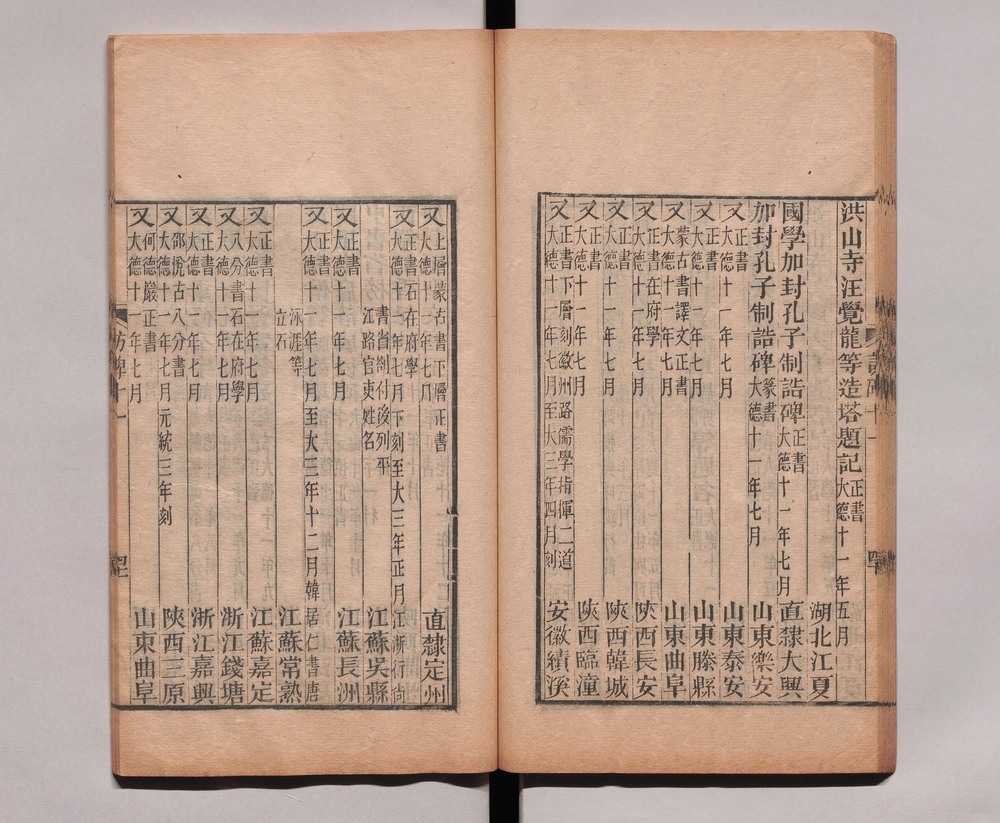 洪山寺汪覺龍等造塔題記正書大德十一年五月 湖北江夏
國學加封孔子制誥碑正書大德十一年七月 直隸大興
加封孔子制誥碑篆書大德十一年七月 山東樂安
又正書大德十一年七月 山東泰安
又正書大德十一年七月 山東滕縣
又蒙古書譯文正書大德十一年七月 山東曲阜
又正書石在府學大德十一年七月 陝西長安
又正書大德十一年七月 陝西韓城
又正書大德十一年七月 陝西臨潼
又正書下層刻徽州路儒學指揮二道大德十一年七月至大三年四月刻 安徽績溪
又上層蒙古書下層正書大德十一年七月 直隸定州
又正書石在府學大德十一年七月下刻至大三年正月江浙行尚
書省劄付後列平江路官吏姓名 江蘇吳縣
又正書大德十一年七月 江蘇長洲
又正書大德十一年七月至大三年十二月韓居仁書唐
泳涯等立石 江蘇常熟
又正書大德十一年七月 江蘇嘉定
又八分書石在府學大德十一年七月 浙江錢塘
又正書大德十一年七月 浙江嘉興
又邵悅古八分書大德十一年七月元統三年刻 陝西三原
又何德嚴正書大德十一年七月 山東曲阜